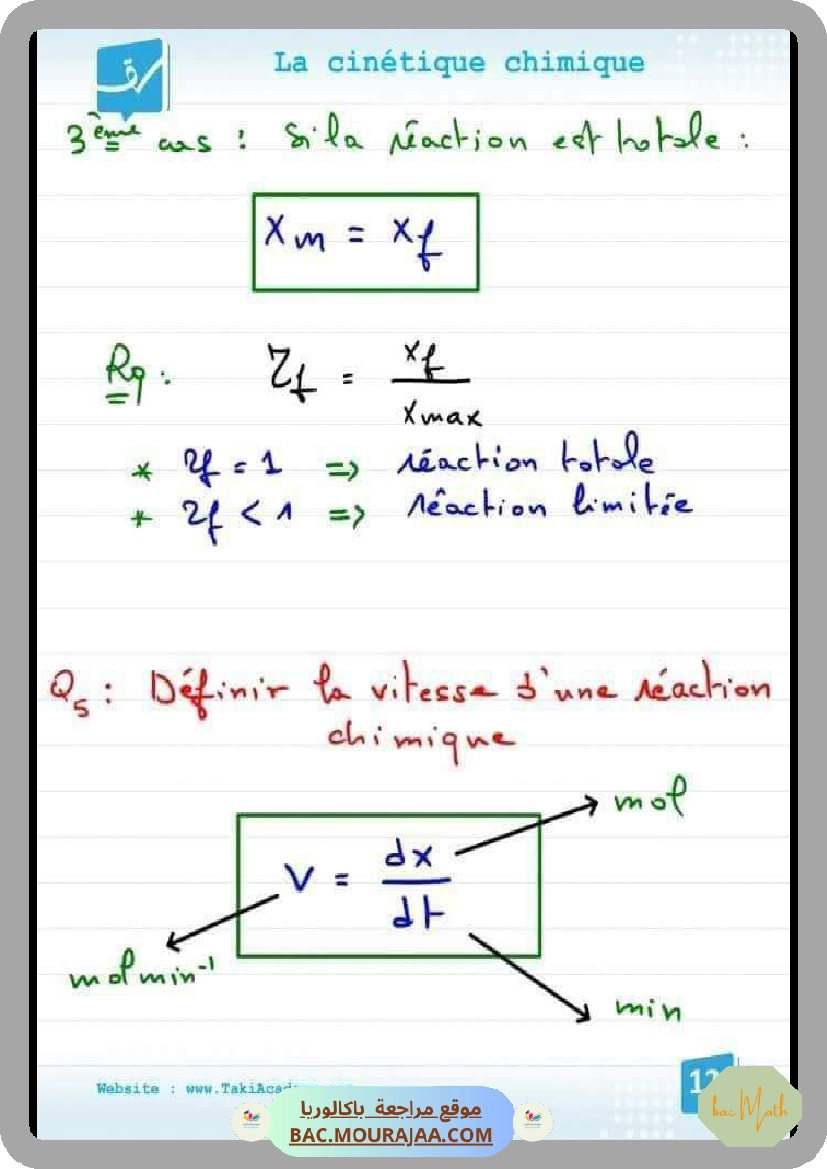 La cinétique chimique
3ème cas : Si la réaction est totale :
xm = xf
Rq : τf = xf / xmax
* τf = 1 => réaction totale
* τf < 1 => réaction limitée
Q5 : Définir la vitesse d'une réaction
chimique
mol
V = dx / dt
mol min-1
min
Website : www.TakiAcad
12
bacMath
موقع مراجعة باكالوريا
BAC.MOURAJAA.COM